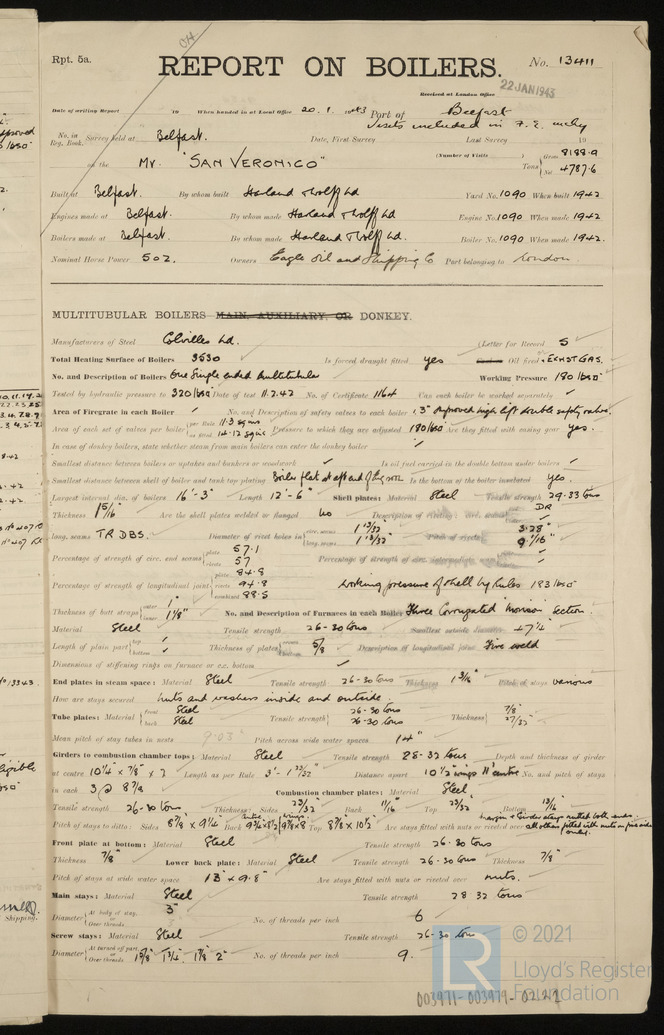 Rpt. 5a.
REPORT ON BOILERS.
No. 13411
22 JAN 1943
Received at London Office
Date of writing Report 19 When handed in at Local Office 20. 1. 1943 Port of Belfast
No. in Reg. Book. Survey held at Belfast. Date, First Survey Visits included in F.E. mchy Last Survey 19
on the MV. "SAN VERONICO" (Number of Visits ) Tons Gross 8188.9
Net 4787.6
Built at Belfast. By whom built Harland & Wolff Ld Yard No. 1090 When built 1942
Engines made at Belfast. By whom made Harland & Wolff Ld Engine No. 1090 When made 1942
Boilers made at Belfast. By whom made Harland & Wolff Ld. Boiler No. 1090 When made 1942.
Nominal Horse Power 502. Owners Eagle Oil and Shipping Co Port belonging to London.
MULTITUBULAR BOILERS MAIN, AUXILIARY, OR DONKEY.
Manufacturers of Steel Colvilles Ld. (Letter for Record S
Total Heating Surface of Boilers 3530 Is forced draught fitted yes Oil fired & EXHST GAS.
No. and Description of Boilers One Single ended Multitubular Working Pressure 180 lbs
Tested by hydraulic pressure to 320 lbs Date of test 11.2.42 No. of Certificate 1164 Can each boiler be worked separately
Area of Firegrate in each Boiler No. and Description of safety valves to each boiler
Area of each set of valves per boiler per Rule
as fitted Pressure to which they are adjusted 180 lbs Are they fitted with easing gear yes.
In case of donkey boilers, state whether steam from main boilers can enter the donkey boiler
Smallest distance between boilers or uptakes and bunkers or woodwork Is oil fuel carried in the double bottom under boilers
Smallest distance between shell of boiler and tank top plating Boiler flat at aft end of Is the bottom of the boiler insulated yes
Largest internal dia. of boilers 16'-3" Length 12'-6" Shell plates: Material Steel Tensile strength 29-33 tons
Thickness 1 5/16 Are the shell plates welded or flanged no Description of riveting: circ. seams DR
long. seams TR DBS. Diameter of rivet holes in circ. seams 1 13/32
long. seams 1 13/32 Pitch of rivets 3.28"
9 7/16"
Percentage of strength of circ. end seams plate 57.1
rivets 57 Percentage of strength of circ. intermediate seam
Percentage of strength of longitudinal joint plate 84.8
rivets 94.8
combined 88.5 Working pressure of shell by Rules 183 lbs
Thickness of butt straps outer 1"
inner 1 1/8" No. and Description of Furnaces in each Boiler Three Corrugated Morison Section.
Material Steel Tensile strength 26-30 tons Smallest outside diameter 47 1/4"
Length of plain part top
bottom Thickness of plates 5/8 Description of longitudinal joint Fire weld
Dimensions of stiffening rings on furnace or c.c. bottom
End plates in steam space: Material Steel Tensile strength 26-30 tons Thickness 1 3/16 Pitch of stays various
How are stays secured Nuts and washers inside and outside.
Tube plates: Material front Steel
back Steel Tensile strength 26-30 tons
26-30 tons Thickness 7/8"
27/32"
Mean pitch of stay tubes in nests 9.03" Pitch across wide water spaces 14"
Girders to combustion chamber tops: Material Steel Tensile strength 28-32 tons Depth and thickness of girder
at centre 10 1/4" x 7/8" x 2 Length as per Rule 3'-1 23/32" Distance apart 10 1/2" wings 11" centre No. and pitch of stays
in each 3 @ 8 7/8 Combustion chamber plates: Material Steel.
Tensile strength 26-30 tons Thickness: Sides 23/32 Back 11/16 Top 23/32 Bottom 13/16
Pitch of stays to ditto: Sides 8 7/8 x 9 1/4" Back Top 8 7/8 x 10 1/2 Are stays fitted with nuts or riveted over
Front plate at bottom: Material Steel Tensile strength 26-30 tons
Thickness 7/8" Lower back plate: Material Steel Tensile strength 26-30 tons Thickness 7/8"
Pitch of stays at wide water space 13" x 9.8" Are stays fitted with nuts or riveted over nuts.
Main stays: Material Steel Tensile strength 28-32 tons
Diameter At body of stay, or Over threads 3" No. of threads per inch 6
Screw stays: Material Steel Tensile strength 26-30 tons
Diameter At turned off part, or Over threads 1 5/8" 1 3/4" 1 7/8" 2" No. of threads per inch 9.
© 2021
LR
Lloyd's Register
Foundation
003971-003979-0222